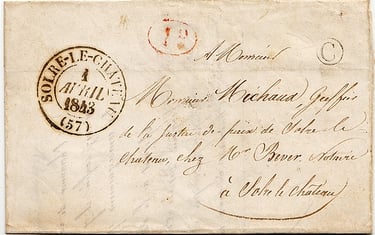 SOLRE-LE-CHATEAU
1
AVRIL
1843
(57)
1 D
C
A Monsieur
Monsieur Michaud, Greffier
de la Justice de paix de Solre-le-
chateau, chez Mr Bever, Notaire
à Solre le château